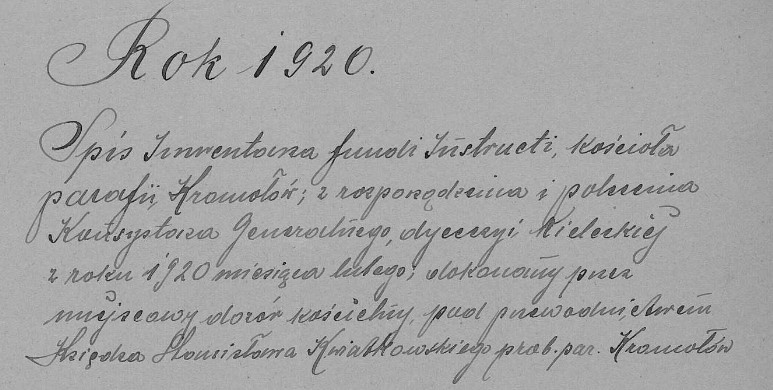 Rok 1920.
Spis Inwentarza fundi Instructi, kościoła
parafii, Kromołów; z rozporządzenia i polecenia
Konsystorza Generalnego, dyecezyi Kieleckiej
z roku 1920 miesiąca lutego; dokonany przez
miejscowy dozór kościelny, pod przewodnictwem
Księdza Stanisława Kwiatkowskiego prob. par. Kromołów